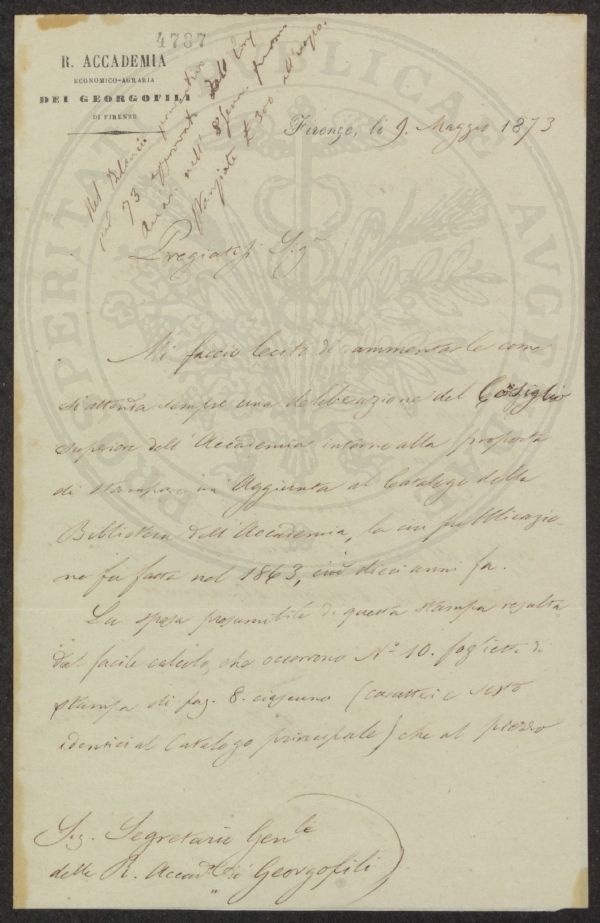 4737
R. ACCADEMIA
ECONOMICO-AGRARIA
DEI GEORGOFILI
DI FIRENZE
Nel Bilancio preventivo
pel 73 approvato dall'
nell'
stanziate £ 300 all'uopo.
Firenze, li 9. Maggio 1873
PROSPERITATI PUBLICAE AUGENDAE
Pregiatis. Sigr
Mi faccio lecito di rammentarle come
si attenda sempre una deliberazione del Consiglio
Superiore dell'Accademia intorno alla proposta
di stampare un'Aggiunta al Catalogo della
Biblioteca dell'Accademia, la cui pubblicazio-
ne fu fatta nel 1863, cioè dieci anni fa.
La spesa presumibile di questa stampa resulta
dal facile calcolo, che occorrono No 10. foglietti di
stampa di pag. 8. ciascuno (caratteri e sesto
identici al Catalogo principale) che al prezzo
Sig. Segretario Genle
della R. Accadia dei Georgofili